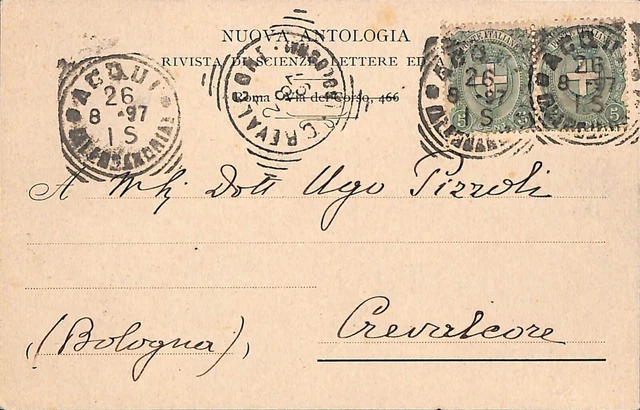 NUOVA ANTOLOGIA
RIVISTA DI SCIENZE, LETTERE ED
Roma Via del Corso, 466
ACQUI
26
8 -97
1 S
(ALESSANDRIA)
CREVALCORE (BOLOGNA)
27
8
POSTE ITALIANE
5
ACQUI
26
8 -97
1 S
ACQUI
26
8 -97
1 S
5
A Dott Ugo Pizzoli
(Bologna), Crevalcore